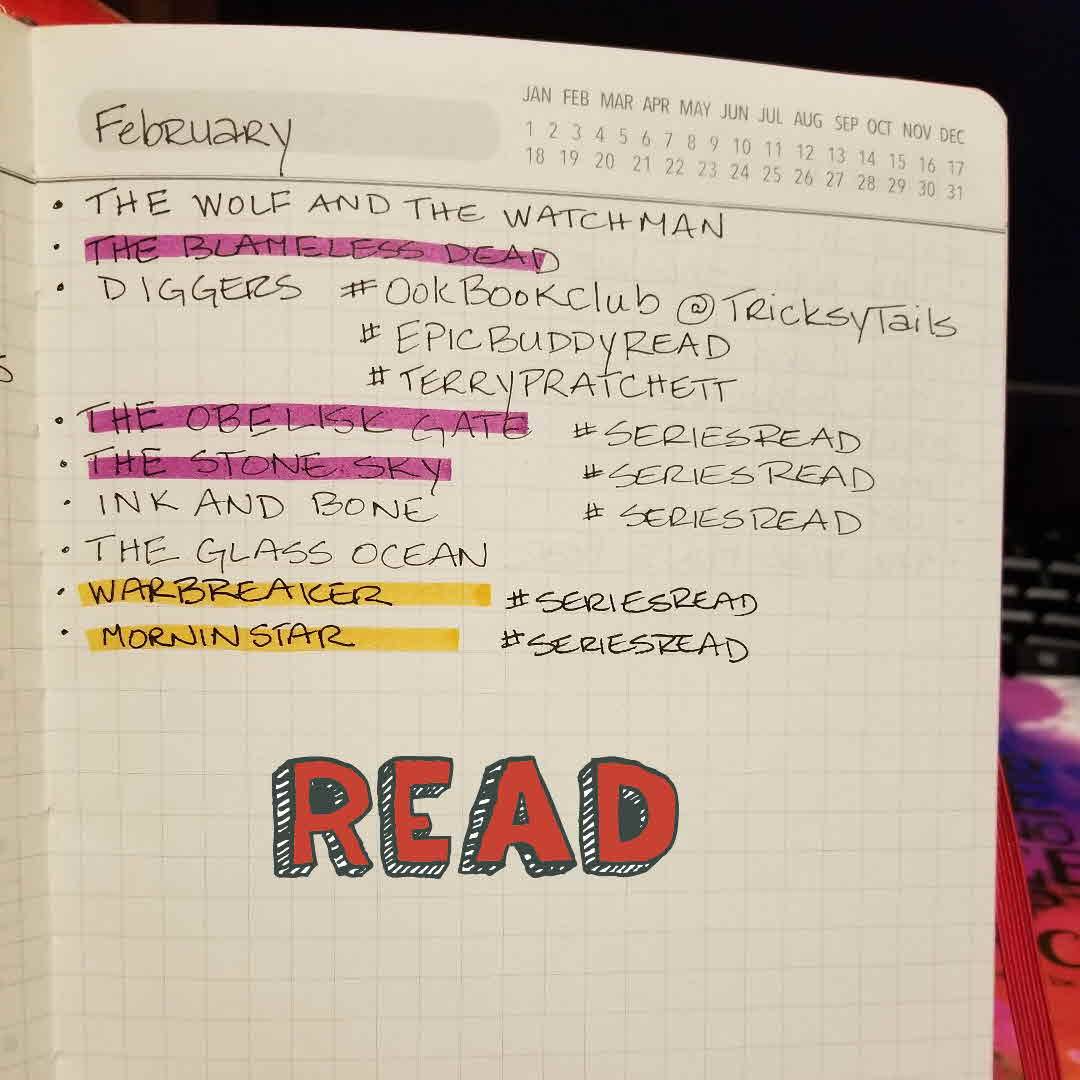 February
JAN FEB MAR APR MAY JUN JUL AUG SEP OCT NOV DEC
1 2 3 4 5 6 7 8 9 10 11 12 13 14 15 16 17
18 19 20 21 22 23 24 25 26 27 28 29 30 31
• THE WOLF AND THE WATCHMAN
• THE BLAMELESS DEAD
• DIGGERS #OokBookClub @TRicksyTails
# EPICBUDDYREAD
# TERRYPRATCHETT
• THE OBELISK GATE #SERIESREAD
• THE STONE SKY #SERIESREAD
• INK AND BONE # SERIESREAD
• THE GLASS OCEAN
• WARBREAKER #SERIESREAD
• MORNIN STAR #SERIESREAD
READ